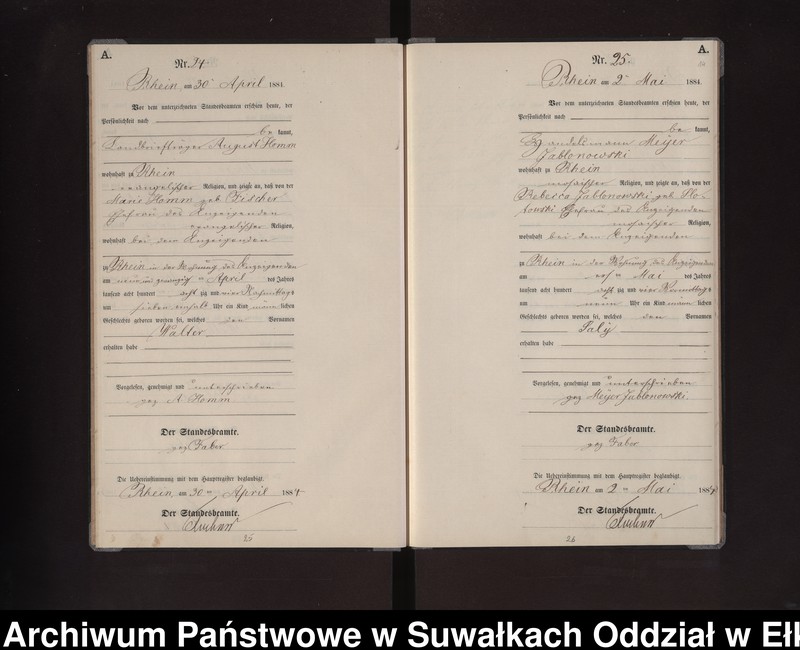 A.
Nr. 24
Rhein, am 30ten April 1884
Vor dem unterzeichneten Standesbeamten erschien heute, der
Persönlichkeit nach
be kannt,
Landbriefträger August Homm
wohnhaft zu Rhein
evangelischer Religion, und zeigte an, daß von der
Marie Homm geb. Fischer
Ehefrau des Anzeigenden
evangelischer Religion,
wohnhaft bei dem Anzeigenden
zu Rhein in der Wohnung des Anzeigenden
am neun und zwanzigsten April des Jahres
tausend acht hundert acht zig und vier Nachmittags
um sieben einhalb Uhr ein Kind männ lichen
Geschlechts geboren worden sei, welches den Vornamen
Walter
erhalten habe
Vorgelesen, genehmigt und unterschrieben
gez A. Homm
Der Standesbeamte.
gez Faber
Die Uebereinstimmung mit dem Hauptregister beglaubigt.
Rhein, am 30ten April 1884
Der Standesbeamte.
25
A.
Nr. 25.
Rhein am 2ten Mai 1884
Vor dem unterzeichneten Standesbeamten erschien heute, der
Persönlichkeit nach
be kannt,
Handelsmann Meyer
Jablonowski
wohnhaft zu Rhein
mosaischer Religion, und zeigte an, daß von der
Rebecca Jablonowski geb.
Ehefrau des Anzeigenden
mosaischer Religion,
wohnhaft bei dem Anzeigenden
zu Rhein in der Wohnung des Anzeigenden
am ersten Mai des Jahres
tausend acht hundert acht zig und vier Nachmittags
um neun Uhr ein Kind männ lichen
Geschlechts geboren worden sei, welches den Vornamen
Saly
erhalten habe
Vorgelesen, genehmigt und unterschrieben
gez Meyer Jablonowski.
Der Standesbeamte.
gez Faber
Die Uebereinstimmung mit dem Hauptregister beglaubigt.
Rhein am 2ten Mai 1884
Der Standesbeamte.
26
Archiwum Państwowe w Suwałkach Oddział w Ełk